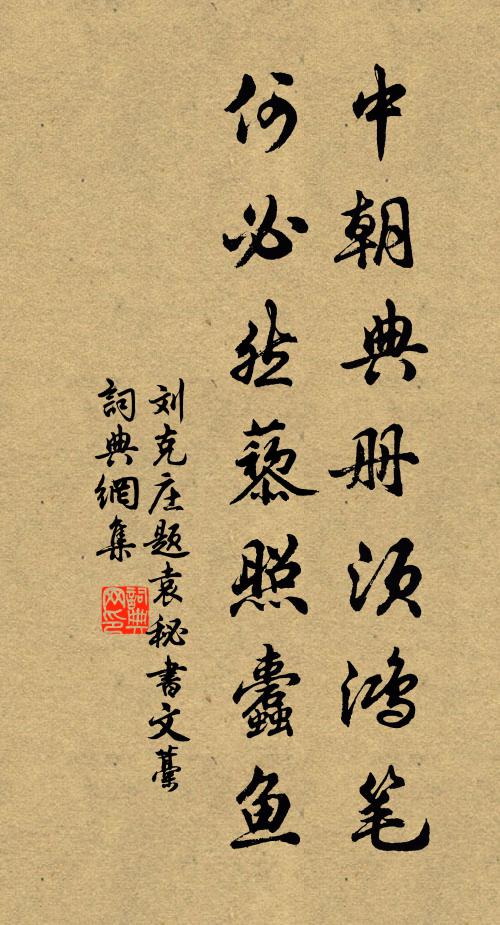 中朝典册须鸿笔
何必然藜照蠹鱼
刘克庄题袁秘书文藁
詞典網集
詞典网印